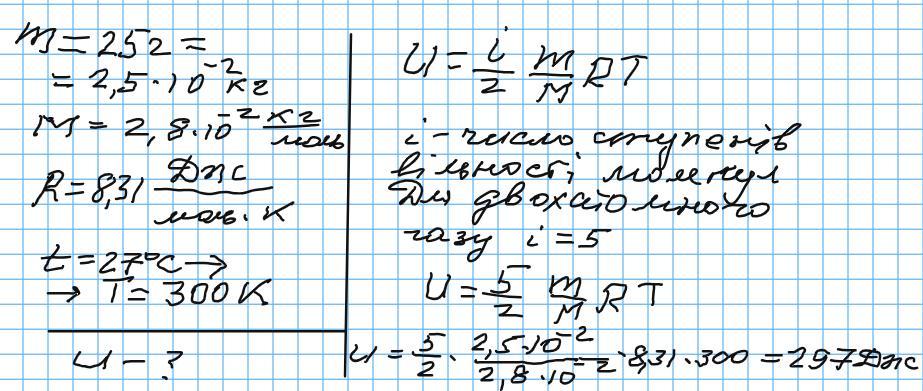 m = 25г =
= 2,5·10⁻² кг
M = 2,8·10⁻² кг/моль
R = 8,31 Дж/моль·К
t = 27°C →
→ T = 300 К
U – ?
U = i/2 m/M RT
i – число ступенів
вільності молекул
Для двохатомного
газу i = 5
U = 5/2 m/M RT
U = 5/2 · 2,5·10⁻²/2,8·10⁻² · 8,31·300 = 297 Дж